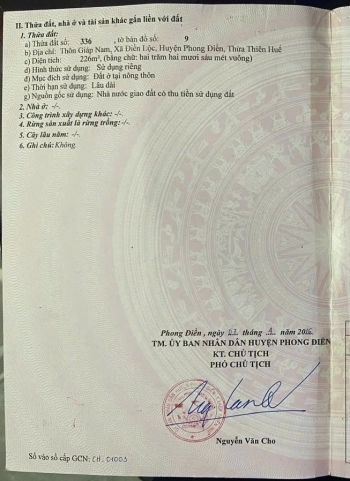 II. Thửa đất, nhà ở và tài sản khác gắn liền với đất
1. Thửa đất:
a) Thửa đất số: 336 , tờ bản đồ số: 9
b) Địa chỉ: Thôn Giáp Nam, Xã Điền Lộc, Huyện Phong Điền, Thừa Thiên Huế
c) Diện tích: 226m², (bằng chữ: hai trăm hai mươi sáu mét vuông)
d) Hình thức sử dụng: Sử dụng riêng
đ) Mục đích sử dụng: Đất ở tại nông thôn
e) Thời hạn sử dụng: Lâu dài
g) Nguồn gốc sử dụng: Nhà nước giao đất có thu tiền sử dụng đất
2. Nhà ở: -/-.
3. Công trình xây dựng khác: -/-.
4. Rừng sản xuất là rừng trồng: -/-.
5. Cây lâu năm: -/-.
6. Ghi chú: Không.
Phong Điền , ngày tháng năm
TM. ỦY BAN NHÂN DÂN HUYỆN PHONG ĐIỀN
KT. CHỦ TỊCH
PHÓ CHỦ TỊCH
Nguyễn Văn Cho
Số vào sổ cấp GCN: CH. 01003